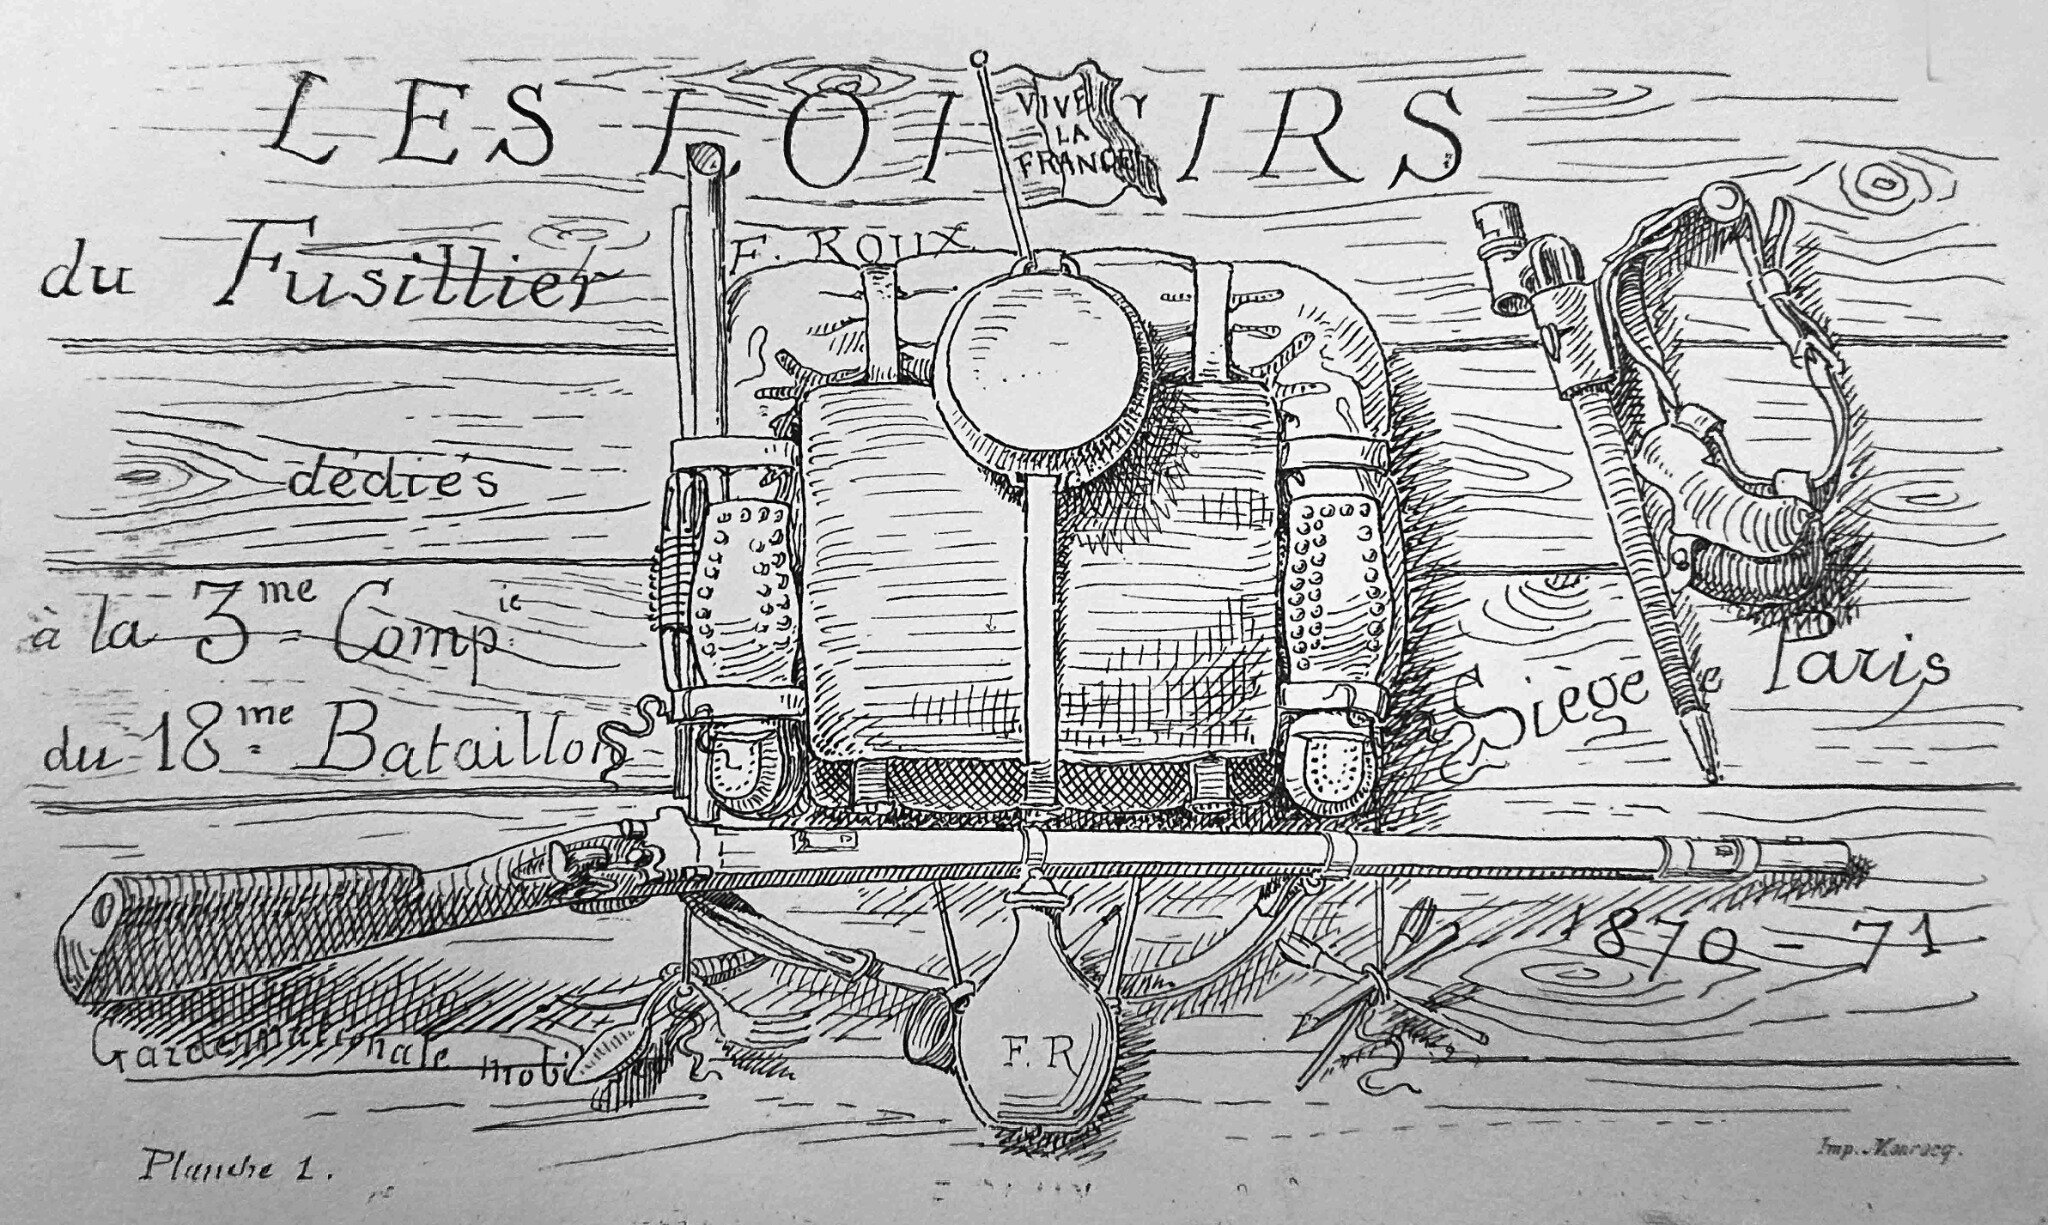 LES LOISIRS
VIVE
LA
FRANCE
du Fusillier
F. ROUX
dédiés
à la 3me Compie
du 18me Bataillon
Siège de Paris
1870-71
Garde nationale mobile
F. R
Planche 1.
Imp. Monrocq.